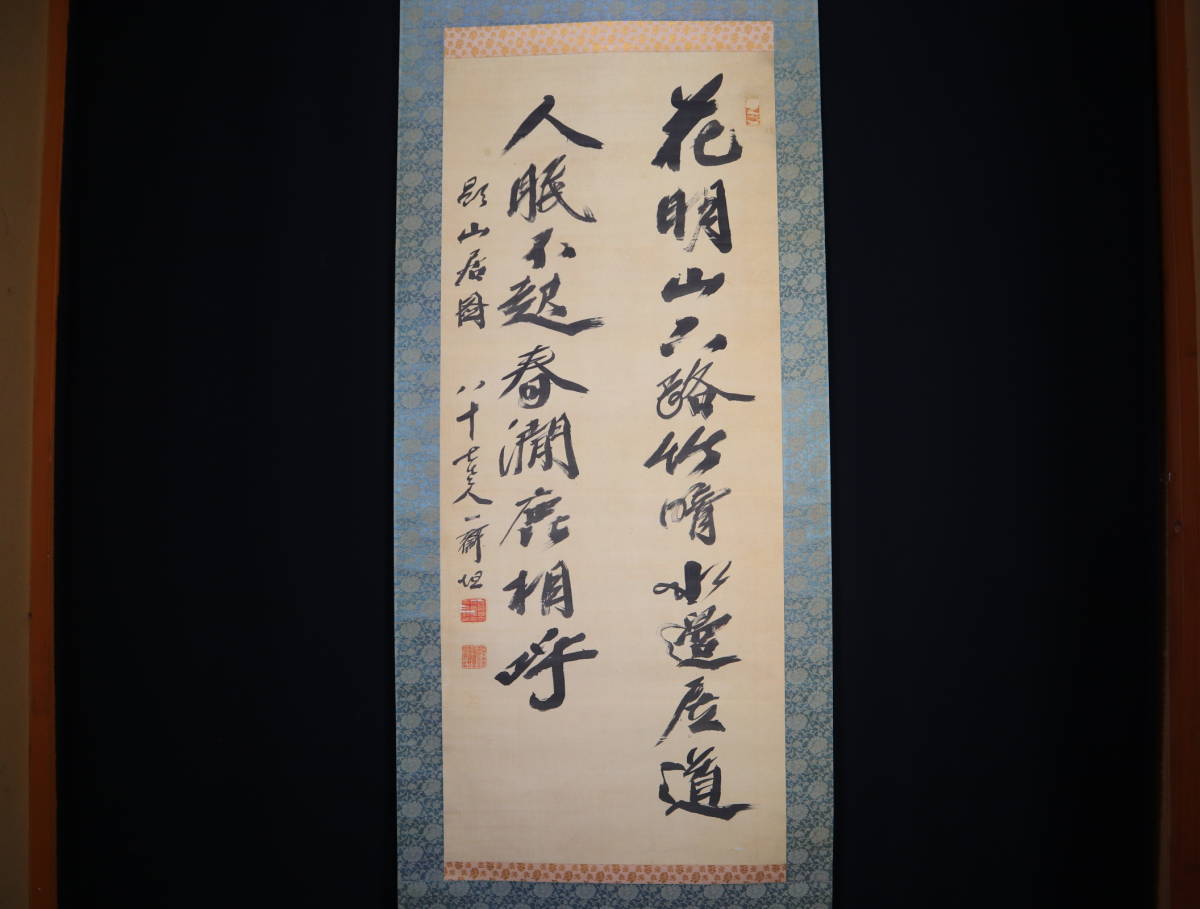 花明山下路竹暗水邊居道
人眠不起春澗鹿相呼
題山居圖 八十 一齋坦